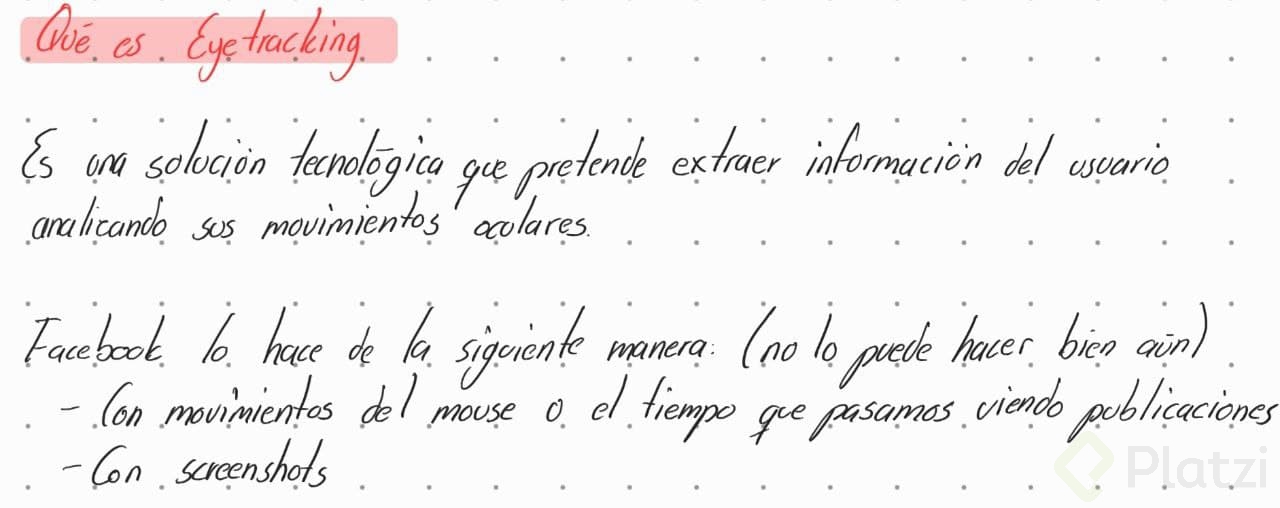 Qué es Eyetracking
Es una solución tecnológica que pretende extraer información del usuario
analicando sus movimientos oculares.
Facebook lo hace de la siguiente manera: (no lo puede hacer bien aún)
- Con movimientos del mouse o el tiempo que pasamos viendo publicaciones
- Con screenshots
Platzi